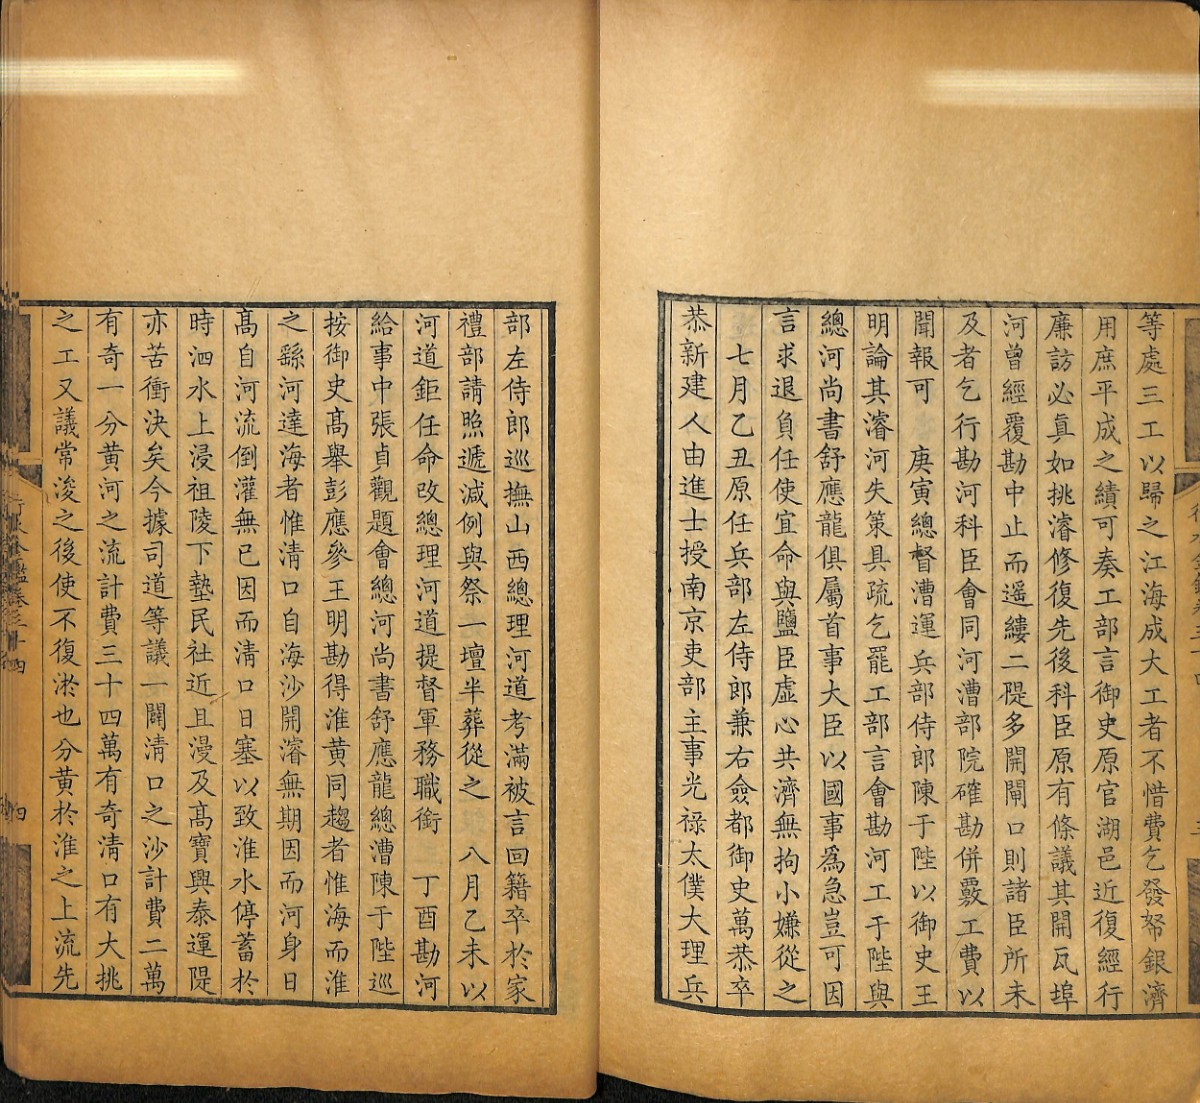 等處三工以歸之江海成大工者不惜費乞發帑銀濟
用庶平成之績可奏工部言御史原官湖邑近復經行
廉訪必真如挑濬修復先後科臣原有條議其開瓦埠
河曾經覆勘中止而遥縷二隄多開閘口則諸臣所未
及者乞行勘河科臣會同河漕部院確勘併覈工費以
聞報可 庚寅總督漕運兵部侍郎陳于陛以御史王
明論其濬河失策具疏乞罷工部言會勘河工于陛與
總河尚書舒應龍俱屬首事大臣以國事爲急豈可因
言求退負任使宜命與鹽臣虚心共濟無拘小嫌從之
七月乙丑原任兵部左侍郎兼右僉都御史萬恭卒
恭新建人由進士授南京吏部主事光禄太僕大理兵
部左侍郎巡撫山西總理河道考滿被言回籍卒於家
禮部請照遞減例與祭一壇半葬從之 八月乙未以
河道鉅任命改總理河道提督軍務職銜 丁酉勘河
給事中張貞觀題會總河尚書舒應龍總漕陳于陛巡
按御史高舉彭應參王明勘得淮黄同趨者惟海而淮
之繇河達海者惟清口自海沙開濬無期因而河身日
高自河流倒灌無已因而清口日塞以致淮水停蓄於
時泗水上浸祖陵下墊民社近且漫及高寶興泰運隄
亦苦衝決矣今據司道等議一闢清口之沙計費二萬
有奇一分黄河之流計費三十四萬有奇清口有大挑
之工又議常浚之後使不復淤也分黄於淮之上流先